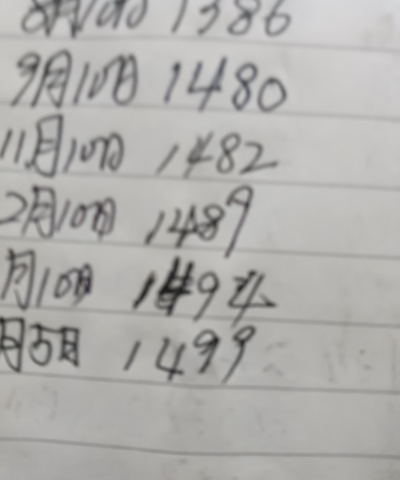 8月10日 1386
9月10日 1480
11月10日 1482
2月10日 1489
月10日 1494
月5日 1499